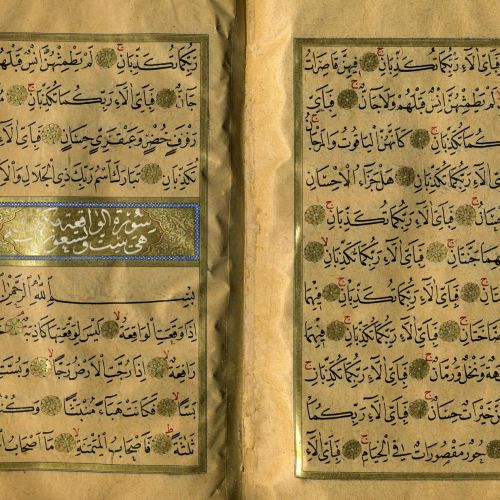 فَبِاَىِّ اٰلَاءِ رَبِّكُمَا تُكَذِّبَانِ فِيهِنَّ قَاصِرَاتُ
لَمْ يَطْمِثْهُنَّ اِنْسٌ قَبْلَهُمْ وَلَا جَانٌّ فَبِاَىِّ
كُمَا تُكَذِّبَانِ كَاَنَّهُنَّ الْيَاقُوتُ وَالْمَرْجَانُ
رَبِّكُمَا تُكَذِّبَانِ هَلْ جَزَاءُ الْاِحْسَانِ
سَانُ فَبِاَىِّ اٰلَاءِ رَبِّكُمَا تُكَذِّبَانِ
هِمَا جَنَّتَانِ فَبِاَىِّ اٰلَاءِ رَبِّكُمَا تُكَذِّبَانِ
تَانِ فَبِاَىِّ اٰلَاءِ رَبِّكُمَا تُكَذِّبَانِ فِيهِمَا
ضَّاخَتَانِ فَبِاَىِّ اٰلَاءِ رَبِّكُمَا تُكَذِّبَانِ فِيهِمَا
هَةٌ وَنَخْلٌ وَرُمَّانٌ فَبِاَىِّ اٰلَاءِ رَبِّكُمَا تُكَذِّبَانِ
خَيْرَاتٌ حِسَانٌ فَبِاَىِّ اٰلَاءِ رَبِّكُمَا
حُورٌ مَقْصُورَاتٌ فِى الْخِيَامِ فَبِاَىِّ اٰلَاءِ
رَبِّكُمَا تُكَذِّبَانِ لَمْ يَطْمِثْهُنَّ اِنْسٌ قَبْلَهُمْ
جَانٌّ فَبِاَىِّ اٰلَاءِ رَبِّكُمَا تُكَذِّبَانِ
رَفْرَفٍ خُضْرٍ وَعَبْقَرِىٍّ حِسَانٍ فَبِاَىِّ اٰلَاءِ
تُكَذِّبَانِ تَبَارَكَ اسْمُ رَبِّكَ ذِى الْجَلَالِ وَالْا
سورة الواقعة مكية
هي ست وتسعون
بِسْمِ اللّٰهِ الرَّحْمٰنِ
اِذَا وَقَعَتِ الْوَاقِعَةُ لَيْسَ لِوَقْعَتِهَا كَاذِبَةٌ
رَافِعَةٌ اِذَا رُجَّتِ الْاَرْضُ رَجًّا وَبُسَّتِ
بَسًّا فَكَانَتْ هَبَاءً مُنْبَثًّا وَكُنْتُ
ثَلٰثَةً فَاَصْحَابُ الْمَيْمَنَةِ مَا اَصْحَابُ